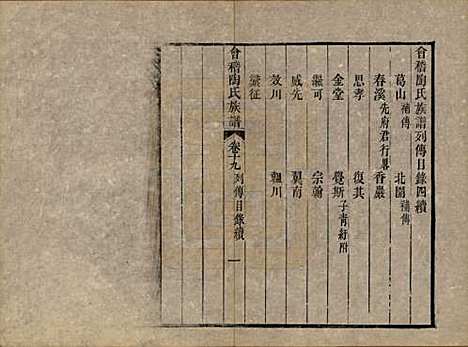 會稽陶氏族譜列傳目錄四續
葛山補傳 北園補傳
春溪先府君行畧 香巖
思孝 復其
金堂 覺斯子青紆附
繼可 宗翰
威先 翼南
效川 飄川
徵
會稽陶氏族譜 卷十九列傳目錄續 一